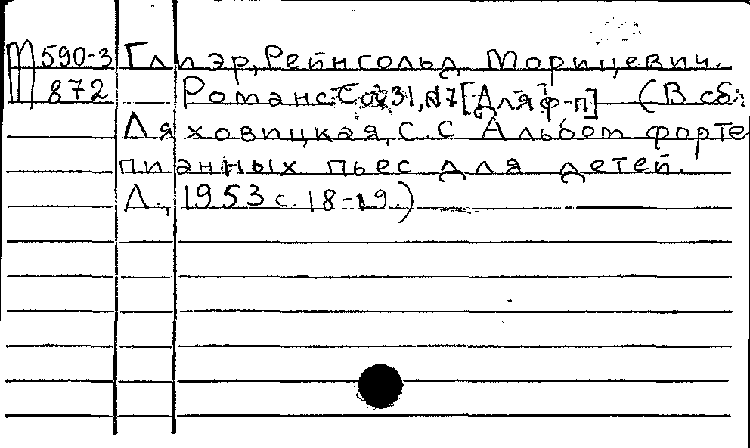 М 590-3 Глиэр, Рейнгольд Морицевич.
872 Романс Соч 31, №7 [Для ф-п] (В сб:
Ляховицкая, С.С Альбом форте
пианных пьес для детей.
Л., 1953 с. 18-19.)